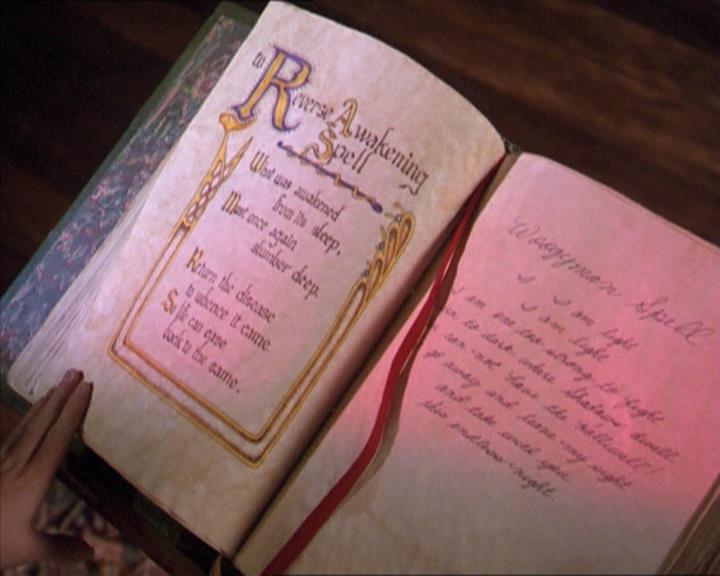 to Reverse Awakening
Spell
What was awakened
from its sleep,
Must once again
slumber deep.
Return the disease
to whence it came.
So life can ease
back to the same.
Woogyman Spell
I am light
I am one too strong to fight
to dark where shadows dwell
can not have the Halliwell!
go away and leave my sight
and take with you
this endless night.